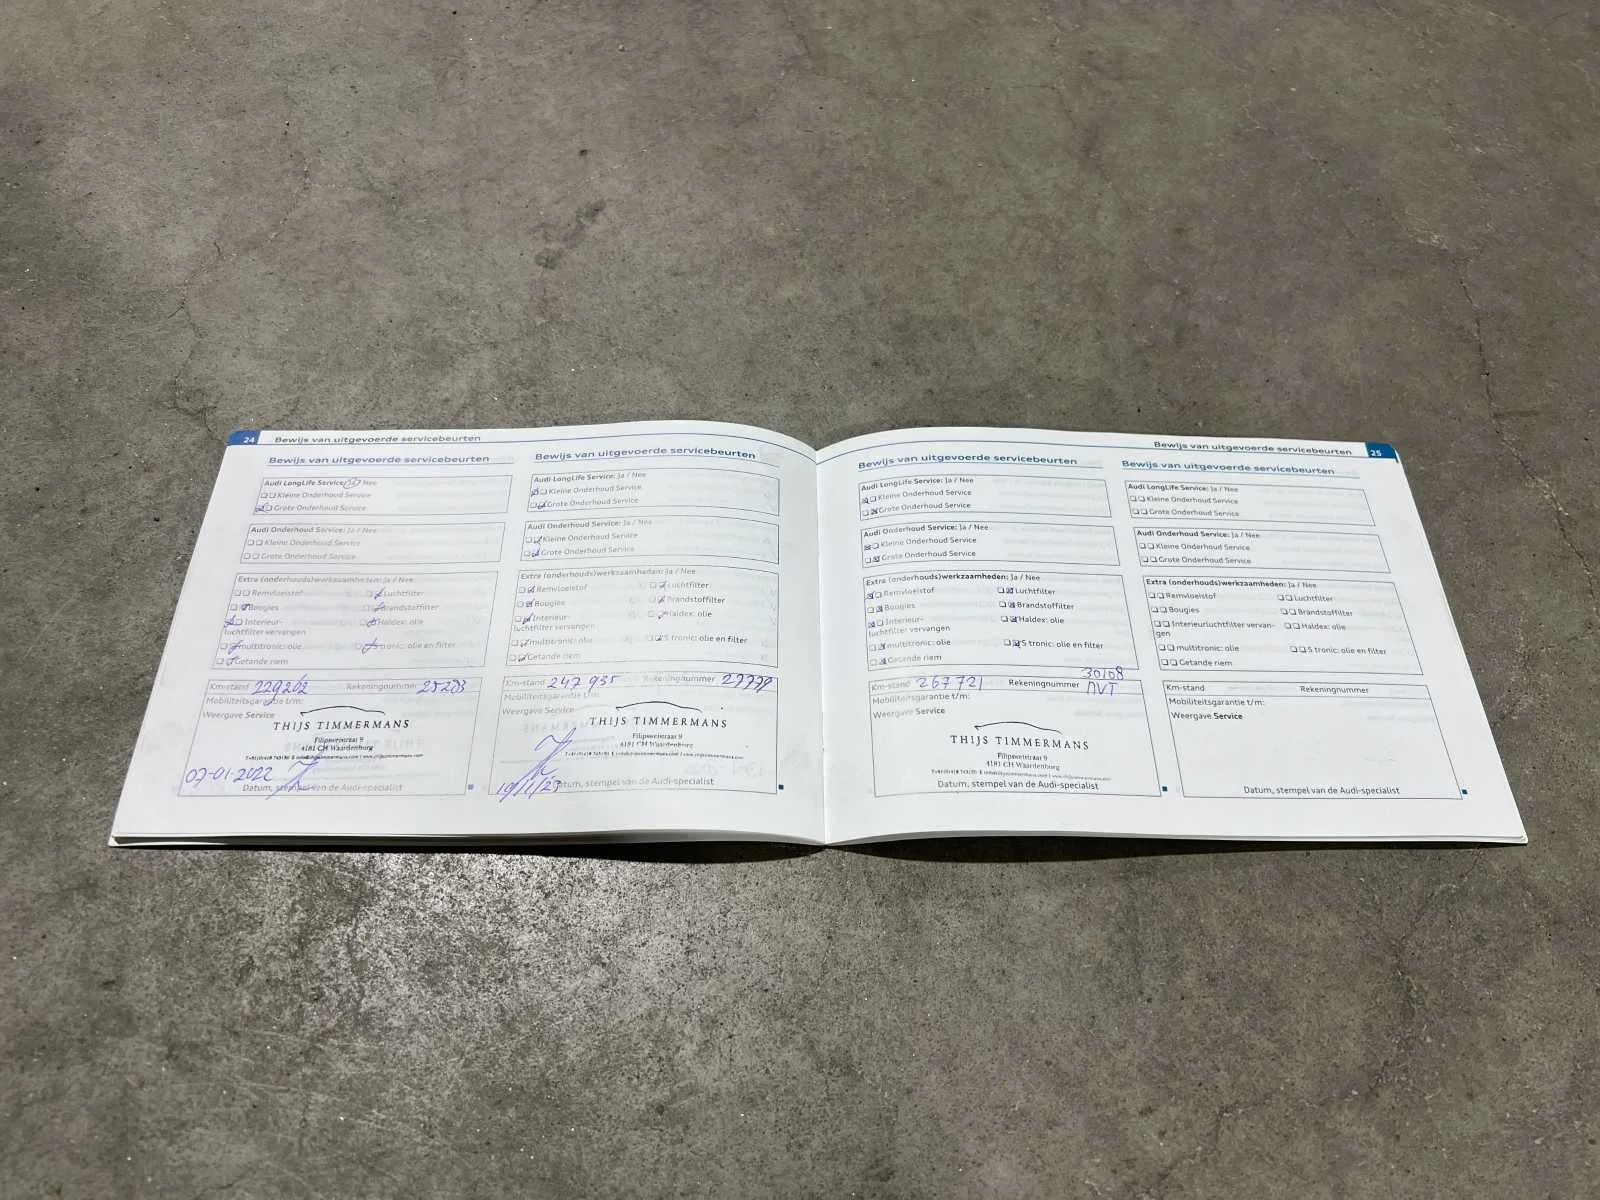 24 Bewijs van uitgevoerde servicebeurten
Bewijs van uitgevoerde servicebeurten
Audi LongLife Service: Ja / Nee
Kleine Onderhoud Service
Grote Onderhoud Service
Audi Onderhoud Service: Ja / Nee
Kleine Onderhoud Service
Grote Onderhoud Service
Extra (onderhouds)werkzaamheden: Ja / Nee
Remvloeistof Luchtfilter
Bougies Brandstoffilter
Interieur- Haldex: olie
luchtfilter vervangen
multitronic: olie S tronic: olie en filter
Getande riem
Km-stand 229202 Rekeningnummer 25283
Mobiliteitsgarantie t/m:
Weergave Service
THIJS TIMMERMANS
Filipsweistraat 9
4181 CH Waardenburg
07-01-2022
Datum, stempel van de Audi-specialist
Bewijs van uitgevoerde servicebeurten
Audi LongLife Service: Ja / Nee
Kleine Onderhoud Service
Grote Onderhoud Service
Audi Onderhoud Service: Ja / Nee
Kleine Onderhoud Service
Grote Onderhoud Service
Extra (onderhouds)werkzaamheden: Ja / Nee
Remvloeistof Luchtfilter
Bougies Brandstoffilter
Interieur- Haldex: olie
luchtfilter vervangen
multitronic: olie S tronic: olie en filter
Getande riem
Km-stand 247 935 Rekeningnummer
Mobiliteitsgarantie t/m:
Weergave Service
THIJS TIMMERMANS
Filipsweistraat 9
4181 CH Waardenburg
19/1/23
Datum, stempel van de Audi-specialist
Bewijs van uitgevoerde servicebeurten 25
Bewijs van uitgevoerde servicebeurten
Audi LongLife Service: Ja / Nee
Kleine Onderhoud Service
Grote Onderhoud Service
Audi Onderhoud Service: Ja / Nee
Kleine Onderhoud Service
Grote Onderhoud Service
Extra (onderhouds)werkzaamheden: Ja / Nee
Remvloeistof Luchtfilter
Bougies Brandstoffilter
Interieur- Haldex: olie
luchtfilter vervangen
multitronic: olie S tronic: olie en filter
Getande riem
30108
Km-stand 267 721 Rekeningnummer NVT
Mobiliteitsgarantie t/m:
Weergave Service
THIJS TIMMERMANS
Filipsweistraat 9
4181 CH Waardenburg
Datum, stempel van de Audi-specialist
Bewijs van uitgevoerde servicebeurten
Audi LongLife Service: Ja / Nee
Kleine Onderhoud Service
Grote Onderhoud Service
Audi Onderhoud Service: Ja / Nee
Kleine Onderhoud Service
Grote Onderhoud Service
Extra (onderhouds)werkzaamheden: Ja / Nee
Remvloeistof Luchtfilter
Bougies Brandstoffilter
Interieurluchtfilter vervan- Haldex: olie
gen
multitronic: olie S tronic: olie en filter
Getande riem
Km-stand Rekeningnummer
Mobiliteitsgarantie t/m:
Weergave Service
Datum, stempel van de Audi-specialist